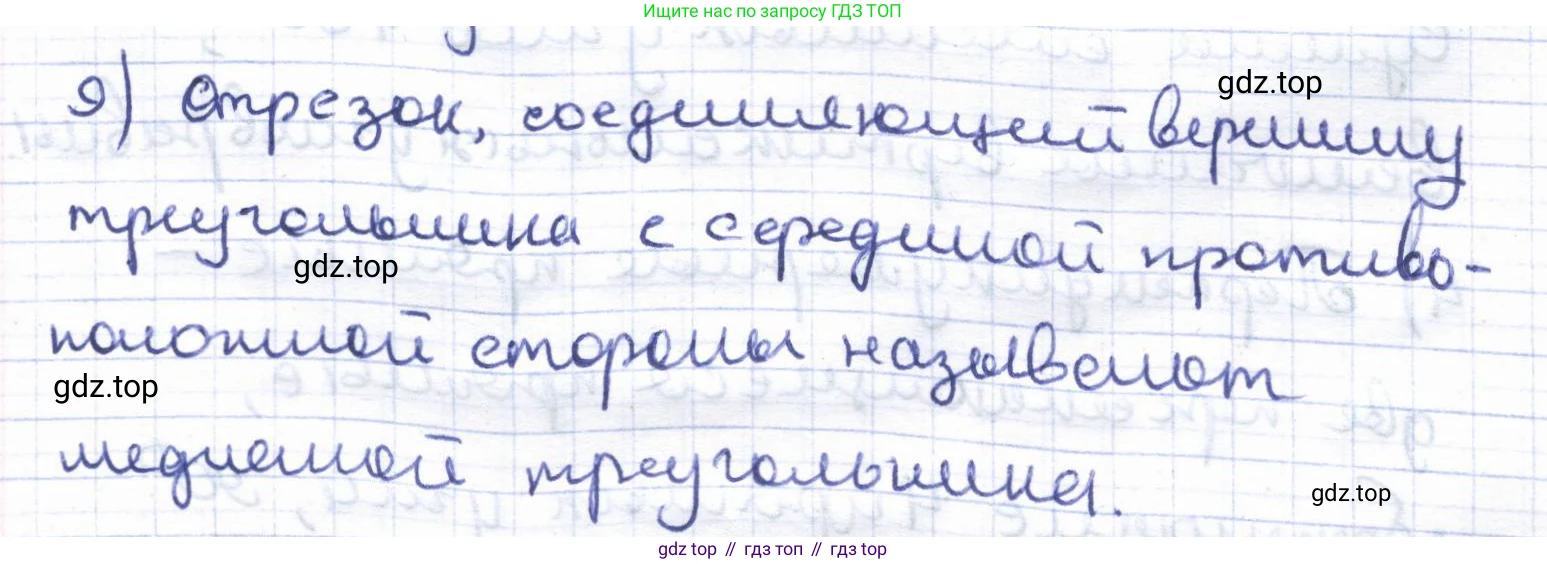 Ищите нас по запросу ГДЗ ТОП
9) Отрезок, соединяющий вершину
gdz.top
треугольника с серединой противо-
gdz.top
положной стороны называют
gdz.top
медианой треугольника.
gdz.top
gdz.top // гдз топ // гдз top